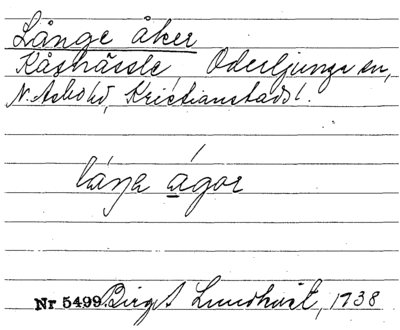 Långe åker
Kåshässle, Oderljunga sn,
N. Åsbo hd, Kristianstads l.
láŋa ágor
Nr 5499 Birgit Lundkvist, 1738